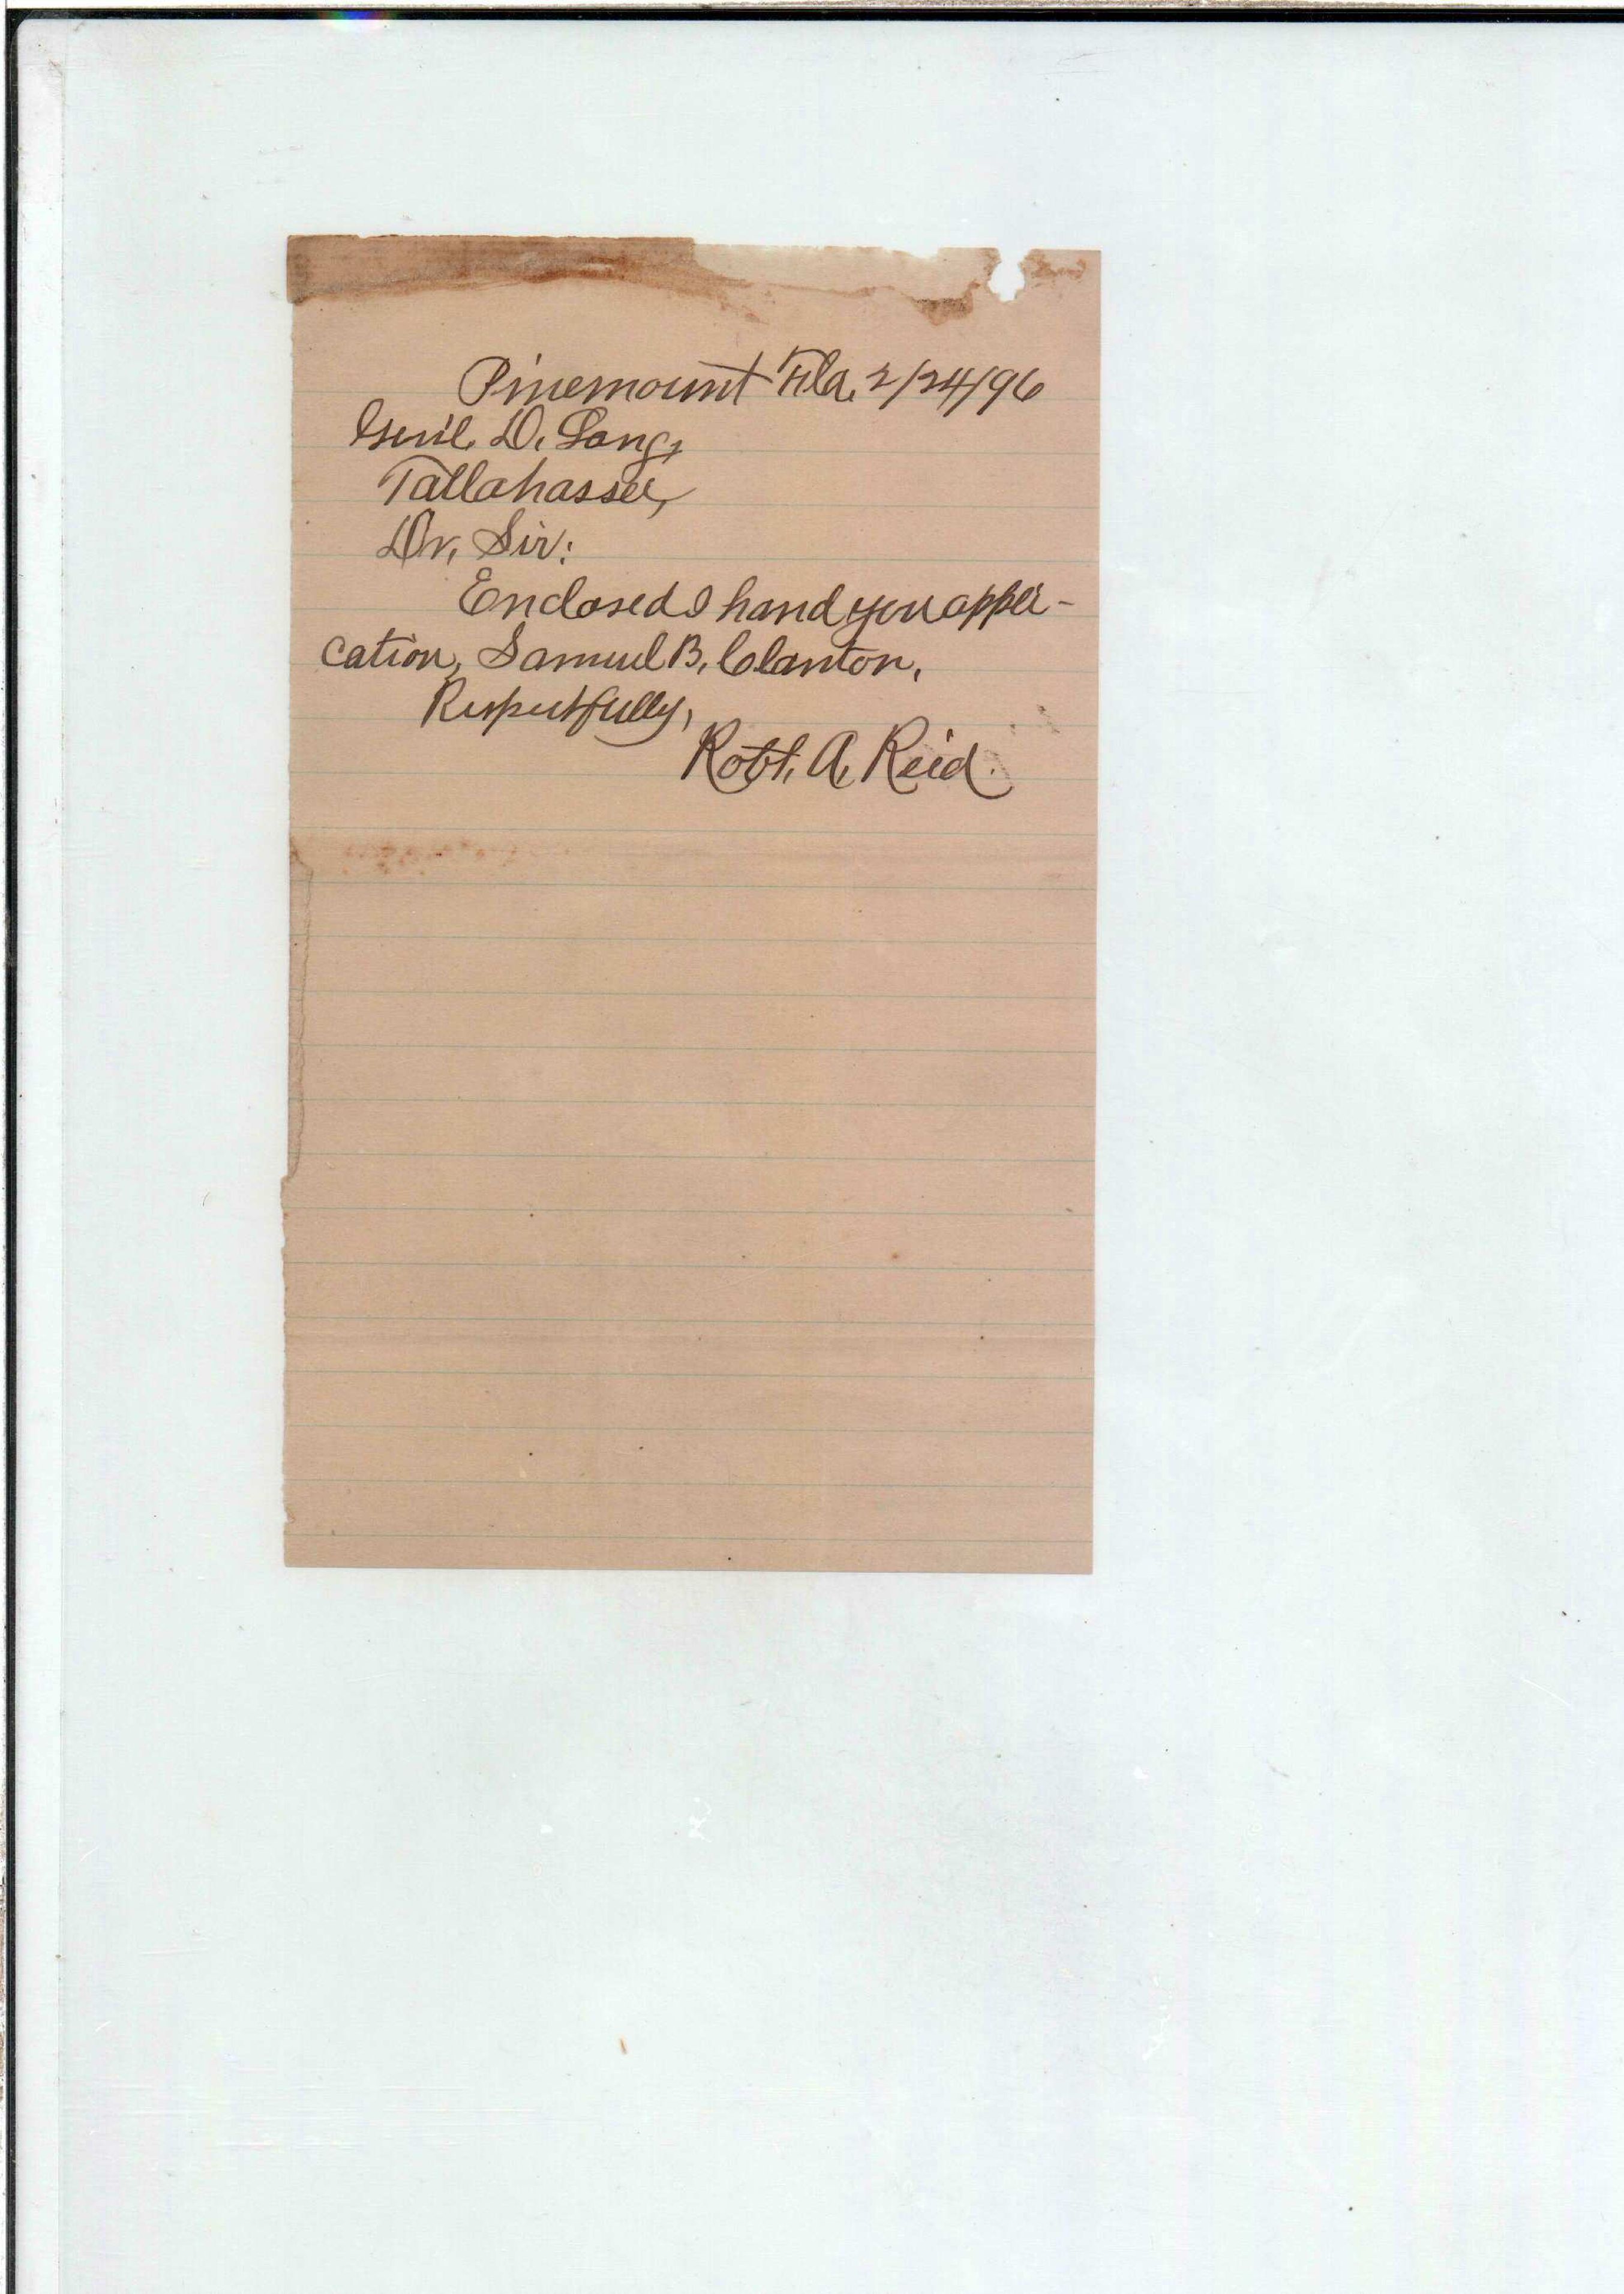 Pinemount Fla. 2/24/96
Gen'l. D. Lang,
Tallahassee,
Dr. Sir:
Enclosed I hand you appli-
cation, Samuel B. Clanton.
Respectfully,
Robt. A. Reid.